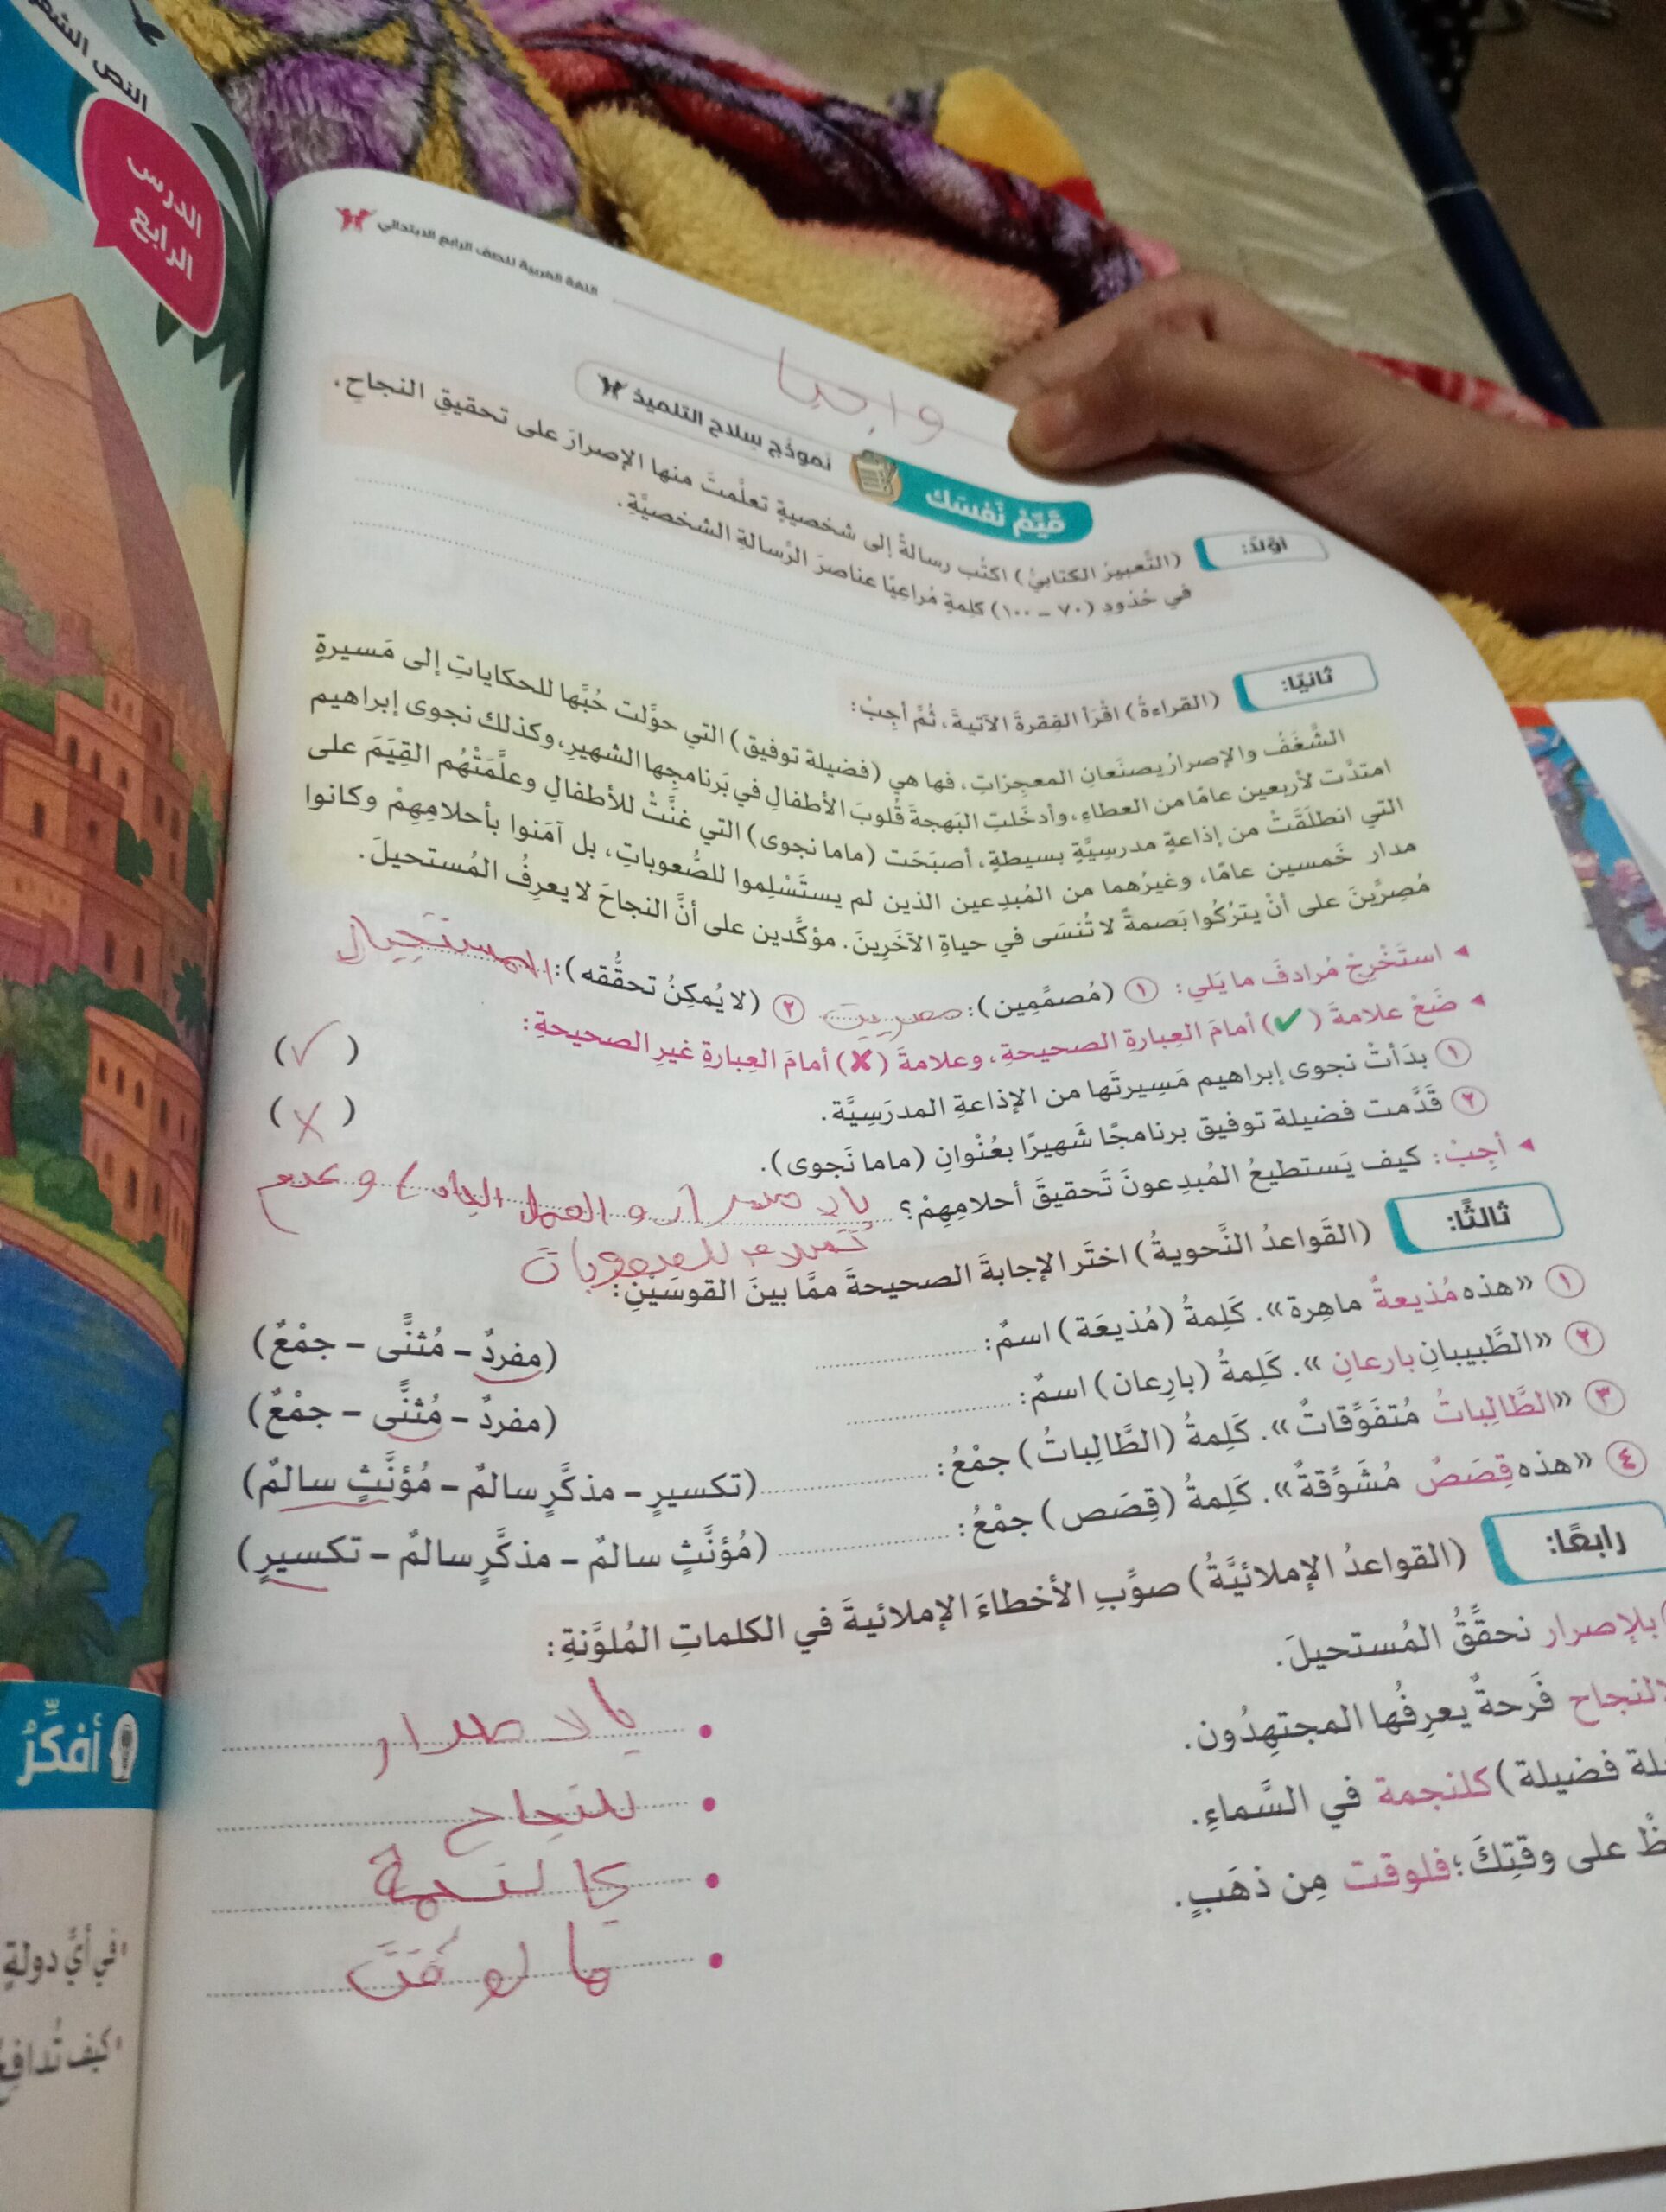 النص
الدرس
الرابع
اللغة العربية للصف الرابع الابتدائي
واجبا
قيِّمْ نَفْسَك نموذج سِلاح التلميذ ١٢
أوَّلًا: (التَّعبيرُ الكتابيُّ) اكتُب رسالةً إلى شخصيةٍ تعلَّمتَ منها الإصرارَ على تحقيقِ النجاحِ.
في حُدُودِ (٧٠ – ١٠٠) كلِمةٍ مُراعِيًا عناصرَ الرِّسالةِ الشخصيَّةِ.
ثانيًا: (القراءةُ) اقْرَأ الفِقرةَ الآتيةَ، ثُمَّ أجِبْ:
الشَّغَفُ والإصرارُ يصنَعانِ المعجِزاتِ، فها هي (فضيلة توفيق) التي حوَّلت حُبَّها للحكاياتِ إلى مَسيرةٍ
امتدَّت لأربعين عامًا من العطاءِ، وأدخَلتِ البَهجةَ قُلوبَ الأطفالِ في بَرنامجِها الشهيرِ، وكذلك نجوى إبراهيم
التي انطلَقَتْ من إذاعةٍ مدرسِيَّةٍ بسيطةٍ، أصبَحَت (ماما نجوى) التي غنَّتْ للأطفالِ وعلَّمَتْهُم القِيَمَ على
مدار خَمسين عامًا، وغيرُهما من المُبدِعين الذين لم يستَسْلِموا للصُّعوباتِ، بل آمَنوا بأحلامِهِمْ وكانوا
مُصِرِّينَ على أنْ يترُكُوا بَصمةً لا تُنسَى في حياةِ الآخَرِينَ. مؤكِّدين على أنَّ النجاحَ لا يعرِفُ المُستحيلَ.
◂ استَخْرِجْ مُرادفَ ما يَلي: ١ (مُصمِّمِين): مصريين ٢ (لا يُمكِنُ تحقُّقه): المستحيل
◂ ضَعْ علامةَ (✔) أمامَ العِبارةِ الصحيحةِ، وعلامةَ (✘) أمامَ العِبارةِ غيرِ الصحيحةِ:
١ بدَأتْ نجوى إبراهيم مَسِيرتَها من الإذاعةِ المدرَسِيَّة. (✓)
٢ قَدَّمت فضيلة توفيق برنامجًا شَهيرًا بعُنْوانِ (ماما نَجوى). (✗)
◂ أجِبْ: كيف يَستطيعُ المُبدِعونَ تَحقيقَ أحلامِهِمْ؟ بالاصرار و العمل الجاد و عدم
للصعوبات
ثالثًا: (القَواعدُ النَّحويةُ) اختَر الإجابةَ الصحيحةَ ممَّا بينَ القوسَيْنِ:
١ «هذه مُذيعةٌ ماهِرة». كَلِمةُ (مُذيعَة) اسمٌ: (مفردٌ – مُثنًّى – جمْعٌ)
٢ «الطَّبيبانِ بارعانِ». كَلِمةُ (بارِعان) اسمٌ: (مفردٌ – مُثنًّى – جمْعٌ)
٣ «الطَّالِباتُ مُتفَوِّقاتٌ». كَلِمةُ (الطَّالِباتُ) جمْعُ: (تكسيرٍ – مذكَّرٍ سالمٌ – مُؤنَّثٍ سالمٌ)
٤ «هذه قِصَصٌ مُشَوِّقةٌ». كَلِمةُ (قِصَص) جمْعُ: (مُؤنَّثٍ سالمٌ – مذكَّرٍ سالمٌ – تكسيرٍ)
رابعًا: (القواعدُ الإملائيَّةُ) صوِّبِ الأخطاءَ الإملائيةَ في الكلماتِ المُلوَّنةِ:
بلإصرار نحقِّقُ المُستحيلَ. • بالاصرار
لالنجاح فَرحةٌ يعرِفُها المجتهِدُون. • للنجاح
فضيلة) كلنجمة في السَّماءِ. • كالنجمة
على وقتِكَ؛ فلوقت مِن ذهَبٍ. • فالوقت
أفكِّرُ
في أيِّ دولةٍ
كيف تُدافِعُ